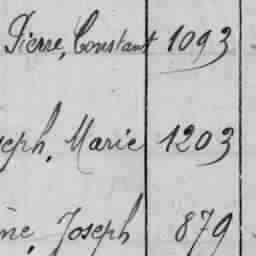 Pierre, Constant 1093
seph, Marie 1203
ne, Joseph 879